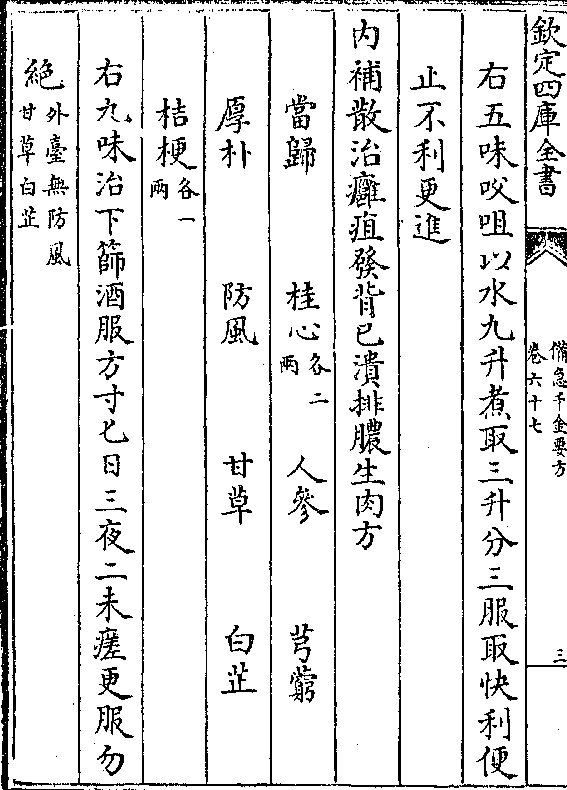 欽定四庫全書
備急千金要方
卷六十七
三
右五味㕮咀以水九升煮取三升分三服取快利便
止不利更進
內補散治癰疽發背已潰排膿生肉方
當歸 桂心各二兩 人參 芎藭
厚朴 防風 甘草 白芷
桔梗各一兩
右九味治下篩酒服方寸匕日三夜二未瘥更服勿
絶外臺無防風甘草白芷